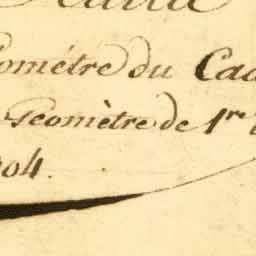 ométre du Cad
Geomètre de 1re
04.